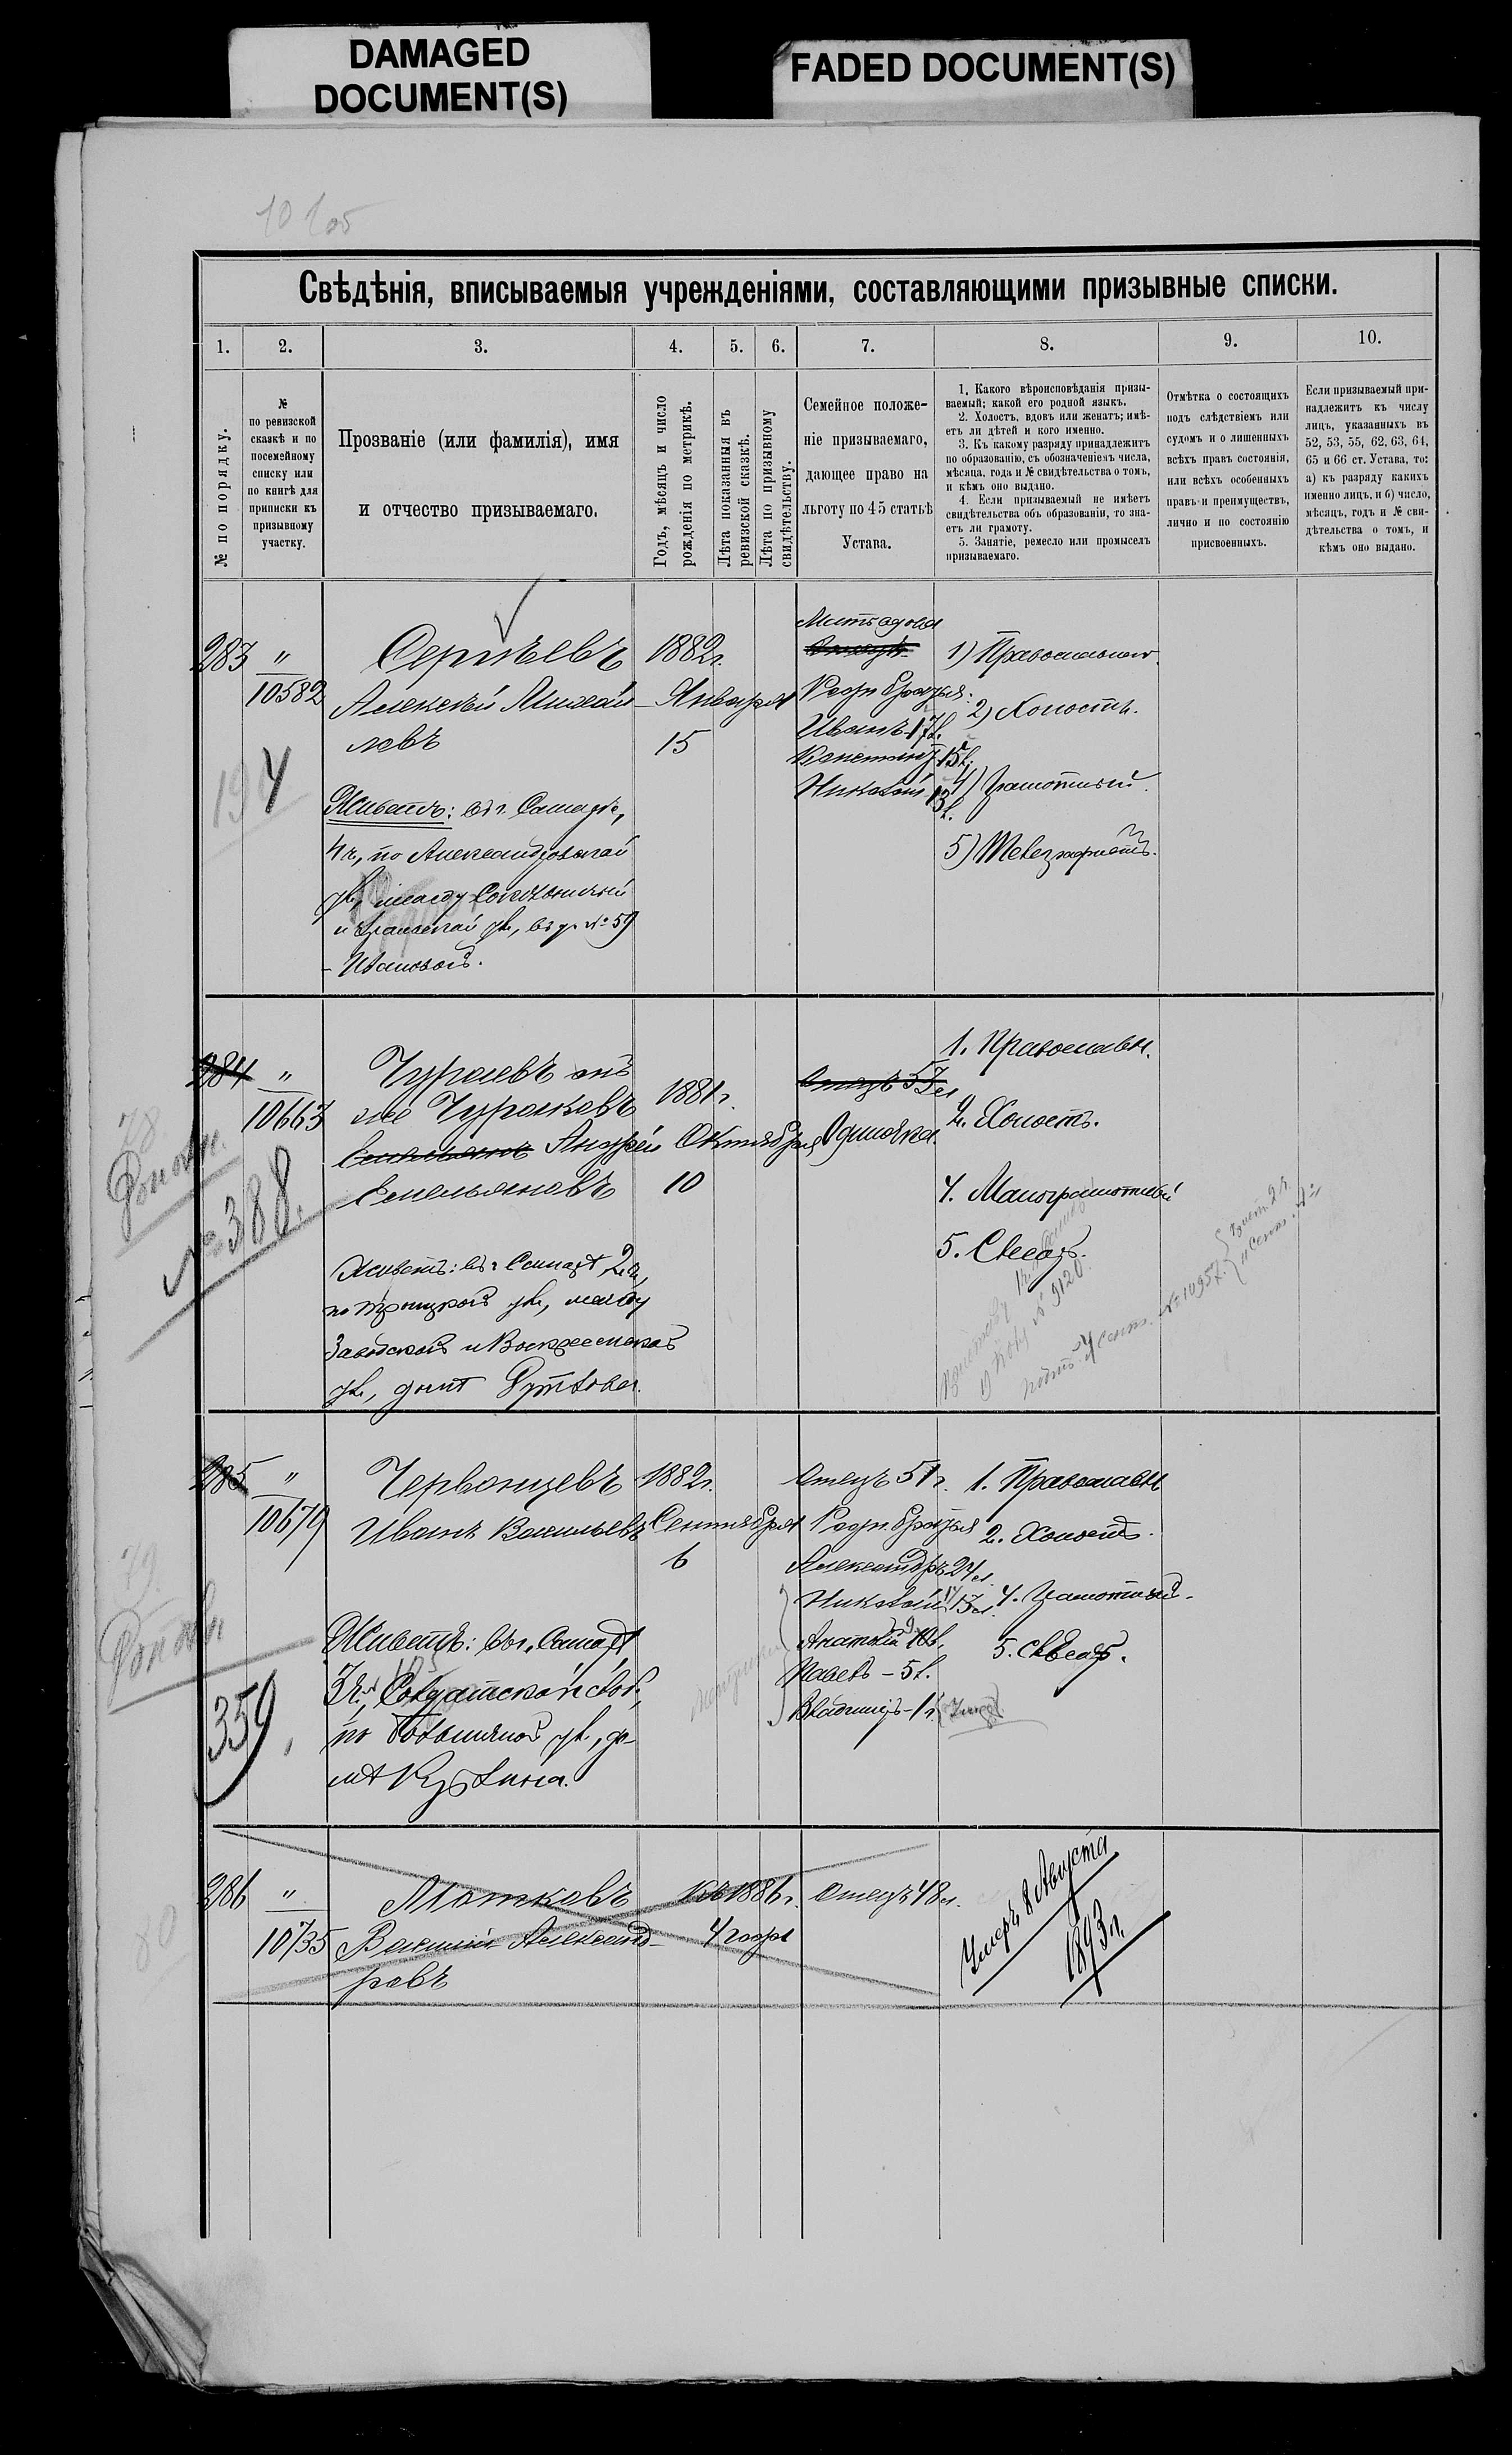 DAMAGED
DOCUMENT(S)
FADED DOCUMENT(S)
10 1об
Свѣдѣнія, вписываемыя учрежденіями, составляющими призывные списки.
1. 2. 3. 4. 5. 6. 7. 8. 9. 10.
№ по порядку.
№
по ревизской
сказкѣ и по
посемейному
списку или
по книгѣ для
приписки къ
призывному
участку.
Прозваніе (или фамилія), имя
и отчество призываемаго.
Годъ, мѣсяцъ и число
рожденія по метрикѣ.
Лѣта показанныя въ
ревизской сказкѣ.
Лѣта по призывному
свидѣтельству.
Семейное положе-
ніе призываемаго,
дающее право на
льготу по 45 статьѣ
Устава.
1. Какого вѣроисповѣданія призы-
ваемый; какой его родной языкъ.
2. Холостъ, вдовъ или женатъ; имѣ-
етъ ли дѣтей и кого именно.
3. Къ какому разряду принадлежитъ
по образованію, съ обозначеніемъ числа,
мѣсяца, года и № свидѣтельства о томъ,
и кѣмъ оно выдано.
4. Если призываемый не имѣетъ
свидѣтельства объ образованіи, то зна-
етъ ли грамоту.
5. Занятіе, ремесло или промыселъ
призываемаго.
Отмѣтка о состоящихъ
подъ слѣдствіемъ или
судомъ и о лишенныхъ
всѣхъ правъ состоянія,
или всѣхъ особенныхъ
правъ и преимуществъ,
лично и по состоянію
присвоенныхъ.
Если призываемый при-
надлежитъ къ числу
лицъ, указанныхъ въ
52, 53, 55, 62, 63, 64,
65 и 66 ст. Устава, то:
а) къ разряду какихъ
именно лицъ, и б) число,
мѣсяцъ, годъ и № сви-
дѣтельства о томъ, и
кѣмъ оно выдано.
283
"
10582
Сергѣевъ
Алексѣй Михай-
ловъ
Живетъ: въ г. Самарѣ,
4 ч, по Александровской
ул, между
ул, въ д. № 59
Ивановой.
1882г.
Января
15
Мать вдова
Отецъ
Родн. братья:
Иванъ-17 л.
Константинъ 15 л.
Николай 13 л.
1) Православн.
2) Холостъ.
4) Грамотный.
5) Телеграфистъ.
284
"
10663
78
№388.
Чураевъ онъ
же Чураковъ
Емельянъ Андрей
Емельяновъ
Живетъ: въ г. Самарѣ, 2 ч,
по Троицкой ул, между
Заводской и Воскресенской
ул, домъ
1881г.
Октября
10
Отецъ 57 л
Одиночка
1. Православн.
2. Холостъ.
4. Малограмотный
5. Слесарь.
№ 9120.
№ 10957.
285
"
10679
79.
359
Червонцевъ
Иванъ Васильевъ
Живетъ: въ г. Самарѣ
3 ч, Солдатской слоб,
по ул, до-
мѣ
1882г.
Сентября
6
Отецъ 51 г.
Родн. братья
Александръ 24 л.
Николай 13 л.
Анатолій 10 л.
Павелъ - 5 л.
Владиміръ - 1 г.
1. Православн
2. Холостъ.
4. Грамотный.
5. Слесарь.
286
"
10735
80
Мотковъ
Василій Александ-
ровъ
Въ 1886 г.
4 года
Отецъ 48 л.
Умеръ 8 Августа
1893 г.